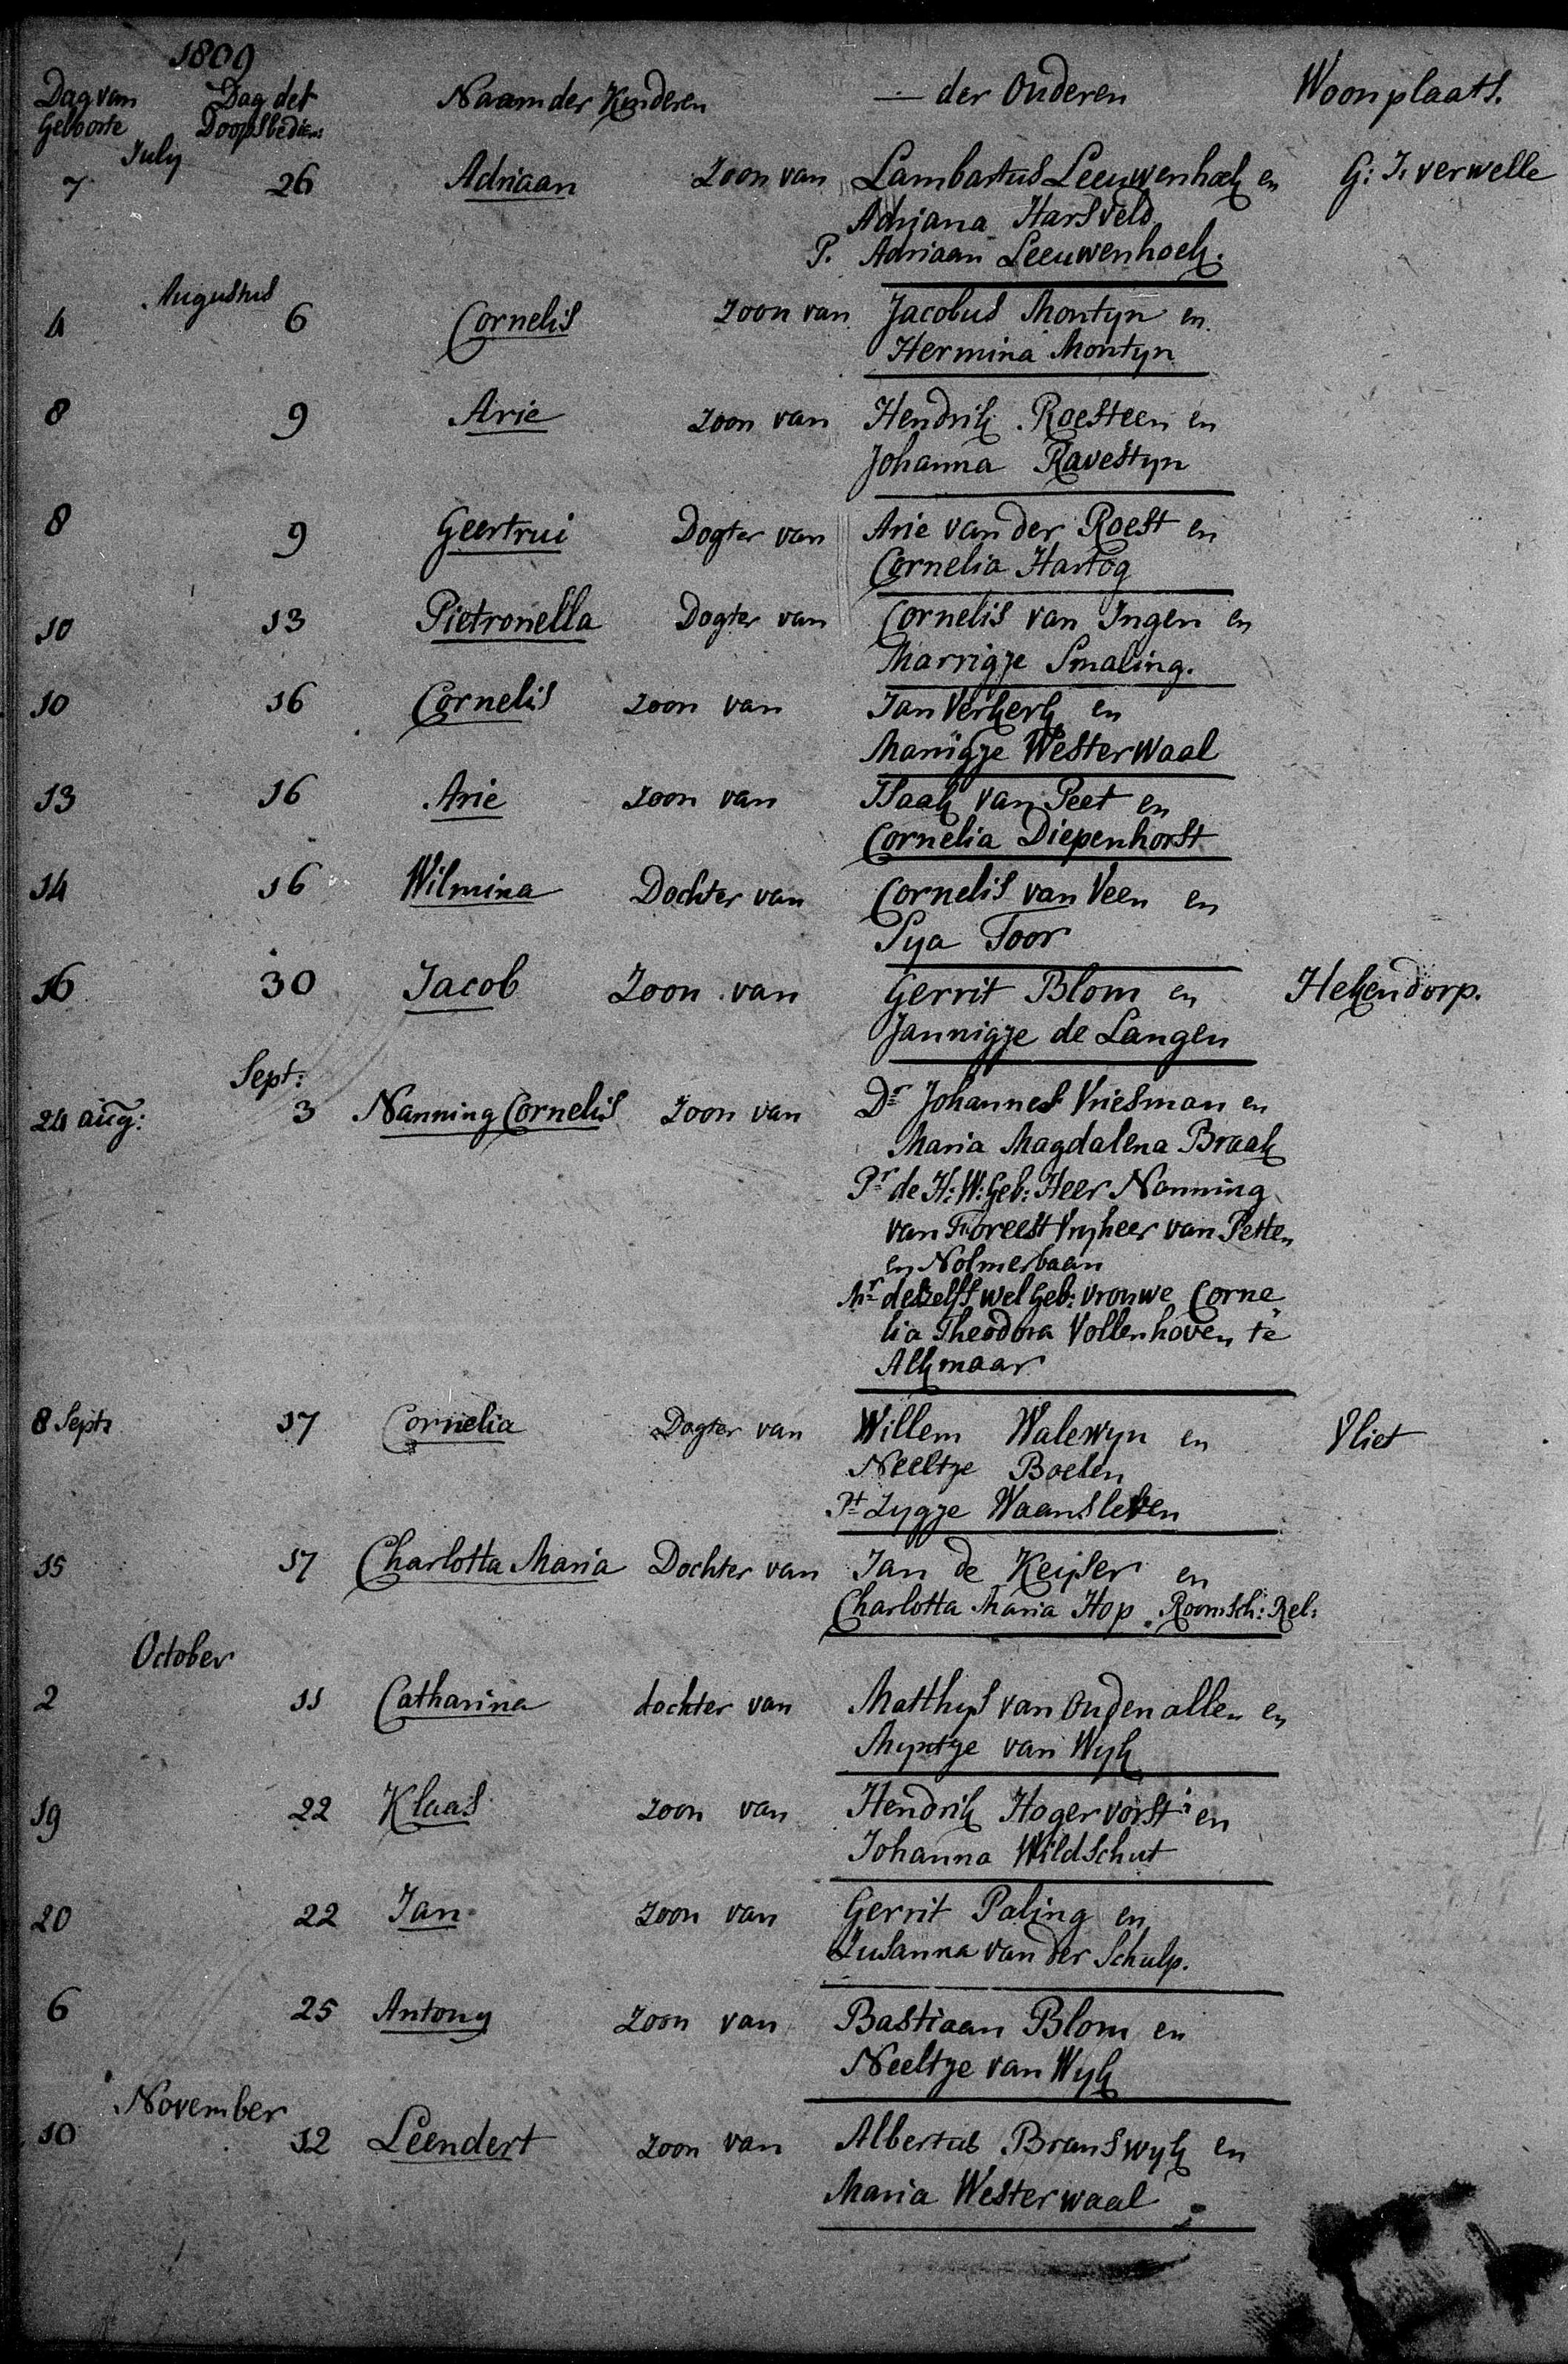 1809
Dag van Dag der Naam der Kinderen — der Ouderen Woonplaats.
Geboorte Doopsbedien:
July
7 26 Adriaan Zoon van Lambartus Leeuwenhoek en G: I. verwelle
Adriana Harsveld
P. Adriaan Leeuwenhoek.
Augustus
4 6 Cornelis Zoon van Jacobus Montyn en
Hermina Montyn
8 9 Arie Zoon van Hendrik Roesteen en
Johanna Ravestyn
8 9 Geertrui Dogter van Arie van der Roest en
Cornelia Hartog
10 13 Pietronella Dogter van Cornelis van Ingen en
Marrigje Smaling.
10 16 Cornelis Zoon van Jan Verkerk en
Marrigje Westerwaal
13 16 Arie Zoon van Isaak van Peet en
Cornelia Diepenhorst
14 16 Wilmina Dochter van Cornelis van Veen en
Pya Toor
16 30 Jacob Zoon van Gerrit Blom en Hekendorp.
Jannigje de Langen
Sept:
24 aug: 3 Nanning Cornelis Zoon van Dr Johannes Vriesman en
Maria Magdalena Braak
Pr de H: W: Geb: Heer Nanning
van Foreest Vryheer van Petten
en Nolmerbaan
Mr deszelfs wel Geb: vrouwe Corne
lia Theodora Vollenhoven te
Alkmaar
8 Sept: 17 Cornelia Dogter van Willem Walewyn en Vliet
Neeltje Boelen
Pt Zygje Waansleben
15 17 Charlotta Maria Dochter van Jan de Keijser en
Charlotta Maria Hop. Roomsch: Rel:
October
2 11 Catharina dochter van Matthys van Oudenallen en
Myntje van Wyk
19 22 Klaas Zoon van Hendrik Hogervorst en
Johanna Wildschut
20 22 Jan Zoon van Gerrit Paling en
Susanna van der Schulp.
6 25 Antony Zoon van Bastiaan Blom en
Neeltje van Wyk
November
10 12 Leendert Zoon van Albertus Branswyk en
Maria Westerwaal